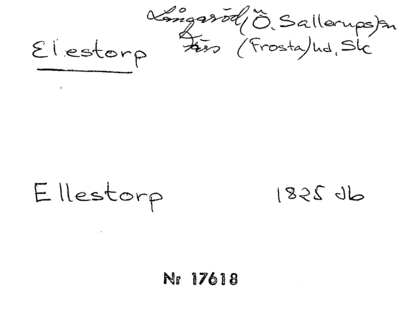 Långaröd (Ö. Sallerups) sn
Ellestorp Färs (Frosta) hd, Sk
Ellestorp 1825 db
Nr 17618